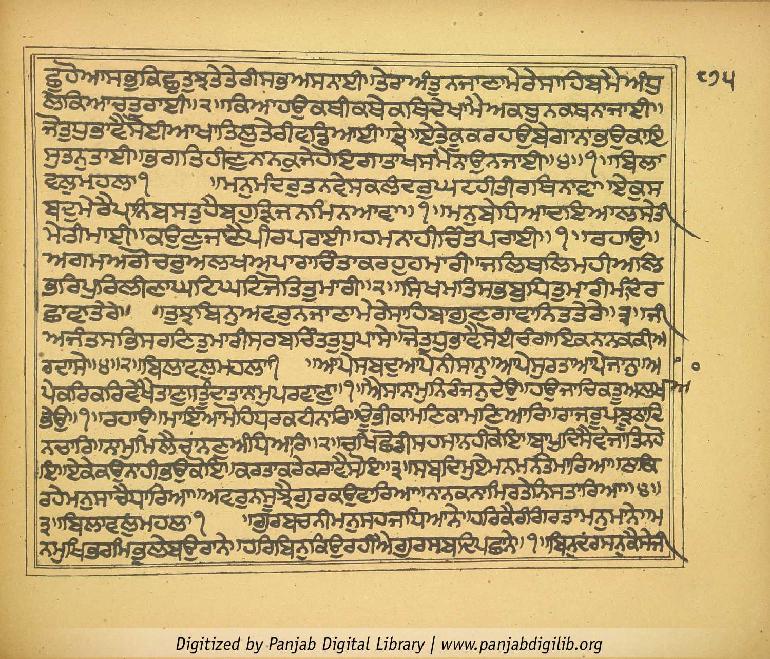 ਛੁਹੋਆਸਭੁਕਿਛੁਤੁਝਤੇਤੇਰੀਸਭਅਸਨਾਈ॥ਤੇਰਾਅੰਤੁਨਜਾਣਾਮੇਰੇਸਾਹਿਬਮੈਅੰਧੁ
ਲੇਕਿਆਚਤੁਰਾਈ॥੨॥ਕਿਆਹਉਕਥੀਕਥੇਕਥਿਦੇਖਾਮੈਅਕਥੁਨਕਥਨਾਜਾਈ॥
ਜੋਤੁਧੁਭਾਵੈਸੋਈਆਖਾਤਿਲੁਤੇਰੀਵਡਿਆਈ॥੩॥ਏਤੇਕੂਕਰਹਉਬੇਗਾਨਾਭਉਕਾਇ
ਸੁਤਨੁਤਾਈ॥ਭਗਤਿਹੀਣੁਨਾਨਕੁਜੇਹੋਇਗਾਤਾਖਸਮੈਨਾਉਨਜਾਈ॥੪॥੧॥ਬਿਲਾ
ਵਲੁਮਹਲਾ੧ ॥ਮਨੁਮੰਦਰੁਤਨਵੇਸਕਲੰਦਰੁਘਟਹੀਤੀਰਥਿਨਾਵਾ॥ਏਕੁਸ
ਬਦੁਮੇਰੈਪ੍ਰਾਨਿਬਸਤੁਹੈਬਹੁੜਿਜਨਮਿਨਆਵਾ॥੧॥ਮਨੁਬੇਧਿਆਦਇਆਲਸੇਤੀ
ਮੇਰੀਮਾਈ॥ਕਉਣੁਜਾਣੈਪੀਰਪਰਾਈ॥ਹਮਨਾਹੀਚਿੰਤਪਰਾਈ॥੧॥ਰਹਾਉ॥
ਅਗਮਅਗੋਚਰੁਅਲਖਅਪਾਰਾਚਿੰਤਾਕਰਹੁਹਮਾਰੀ॥ਜਲਿਥਲਿਮਹੀਅਲਿ
ਭਰਿਪੁਰਿਲੀਣਾਘਟਿਘਟਿਜੋਤਿਤੁਮਾਰੀ॥੨॥ਸਿਖਮਤਿਸਭਬੁਧਿਤੁਮਾਰੀਮੰਦਿਰ
ਛਾਵਾਤੇਰੇ॥ ਤੁਝਬਿਨੁਅਵਰੁਨਜਾਣਾਮੇਰੇਸਾਹਿਬਾਗੁਣਗਾਵਾਨਿਤਤੇਰੇ॥੩॥ਜੀ
ਅਜੰਤਸਭਿਸਰਣਿਤੁਮਾਰੀਸਰਬਚਿੰਤਤੁਧੁਪਾਸੇ॥ਜੋਤੁਧੁਭਾਵੈਸੋਈਚੰਗਾਇਕਨਾਨਕਕੀਅ
ਰਦਾਸੇ॥੪॥੨॥ਬਿਲਾਵਲੁਮਹਲਾ੧ ॥ਆਪੇਸਬਦੁਆਪੇਨੀਸਾਨੁ॥ਆਪੇਸੁਰਤਾਆਪੇਜਾਨੁ॥ਆ
ਪੇਕਰਿਕਰਿਵੇਖੈਤਾਣੁ॥ਤੂਦਾਤਾਨਾਮੁਪਰਵਾਣੁ॥੧॥ਐਸਾਨਾਮੁਨਿਰੰਜਨਦੇਉ॥ਹਉਜਾਚਿਕੁਤੂਅਲਖ
ਭੇਉ॥੧॥ਰਹਾਉ॥ਮਾਇਆਮੋਹੁਧਰਕਟੀਨਾਰਿ॥ਭੂੰਡੀਕਾਮਣਿਕਾਮਣਿਆਰਿ॥ਰਾਜੁਰੂਪੁਝੂਠਾਦਿ
ਨਚਾਰਿ॥ਨਾਮੁਮਿਲੈਚਾਨਣੁਅੰਧਿਆਰਿ॥੨॥ਚਖਿਛੋਡੀਸਹਸਾਨਹੀਕੋਇ॥ਬਾਪੁਦਿਸੈਵੇਜਾਤਿਨਹੋ
ਇ॥ਏਕੇਕਉਨਾਹੀਭਉਕੋਇ॥ਕਰਤਾਕਰੇਕਰਾਵੈਸੋਇ॥੩॥ਸਬਦਿਮੁਏਮਨੁਮਨਤੇਮਾਰਿਆ॥ਠਾਕਿ
ਰਹੇਮਨੁਸਾਚੈਧਾਰਿਆ॥ਅਵਰੁਨਸੂਝੈਗੁਰਕਉਵਾਰਿਆ॥ਨਾਨਕਨਾਮਿਰਤੇਨਿਸਤਾਰਿਆ॥੪॥
੩॥ਬਿਲਾਵਲੁਮਹਲਾ੧ ॥ਗੁਰਬਚਨੀਮਨੁਸਹਜਧਿਆਨੇ॥ਹਰਿਕੈਰੰਗਿਰਤਾਮਨੁਮਾਨੇ॥ਮ
ਨਮੁਖਿਭਰਮਿਭੁਲੇਬਉਰਾਨੇ॥ਹਰਿਬਿਨੁਕਿਉਰਹੀਐਗੁਰਸਬਦਿਪਛਾਨੇ॥੧॥ਬਿਨੁਦਰਸਨਕੈਸੇਜੀ
Digitized by Panjab Digital Library | www.panjabdigilib.org